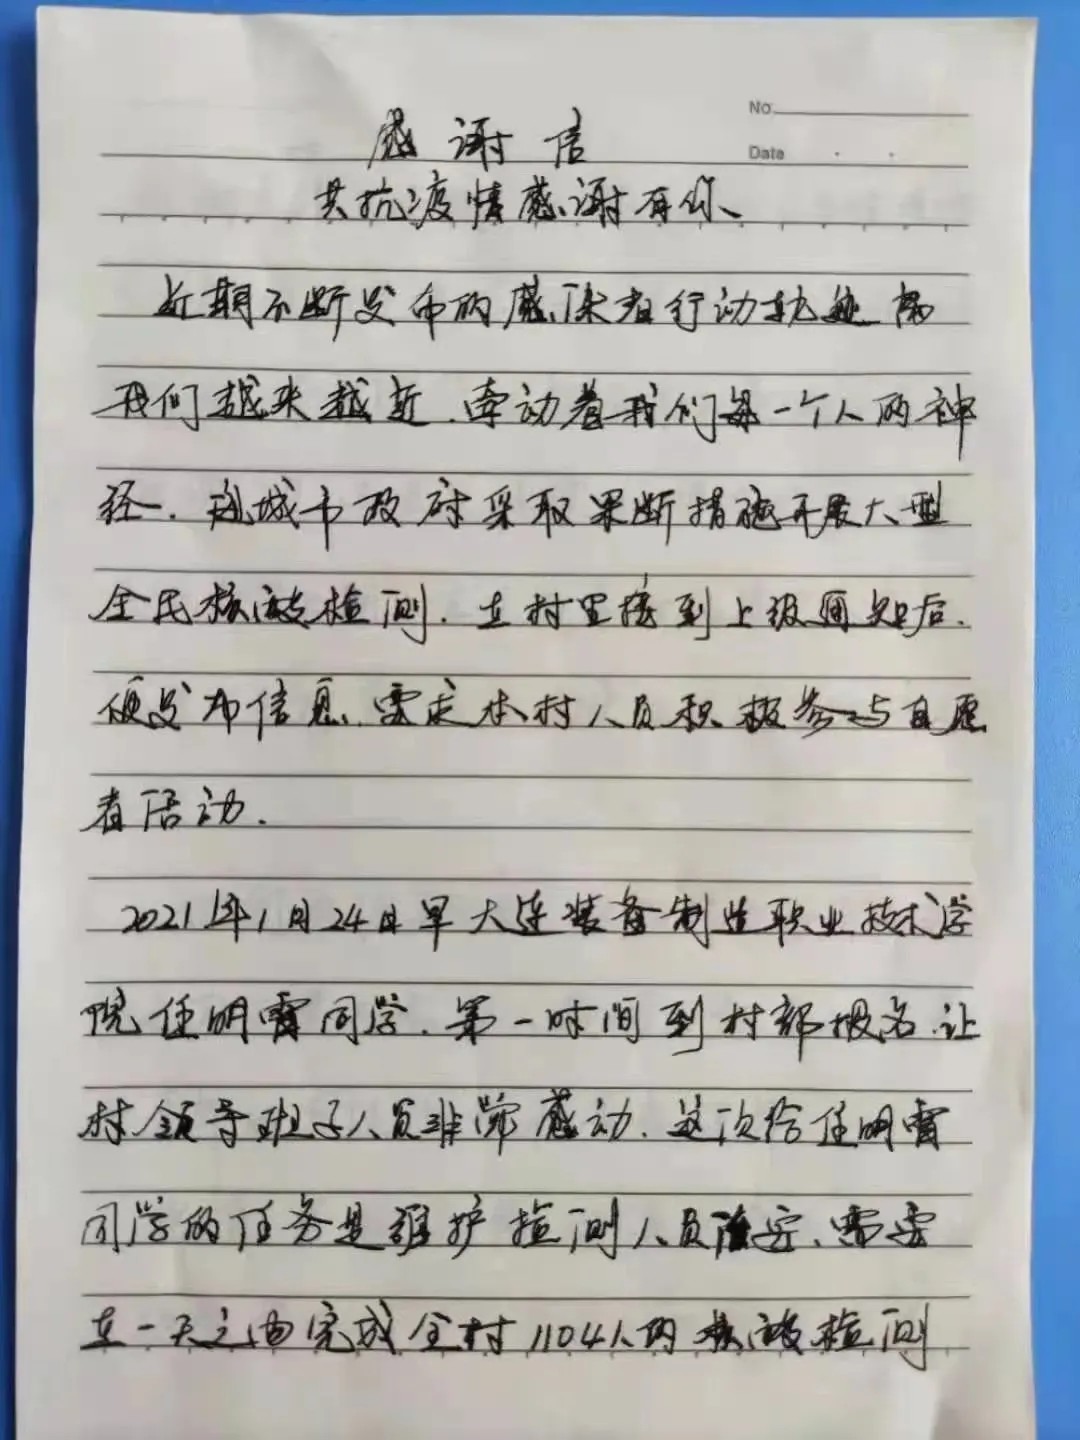 No.
Date
感谢信
共抗疫情感谢有你、
近期不断发布的感染者行动轨迹离
我们越来越近.牵动着我们每一个人的神
经.城市政府采取果断措施开展大型
全民核酸检测.在村里接到上级通知后.
便发布信息、需求本村人员积极参与自愿
者活动.
2021年1月24日早大连装备制造职业技术学
院任明雷同学.第一时间到村部报名.让
村领导班子人员非常感动.这次给任明雷
同学的任务是维护检测人员治安、需要
在一天之内完成全村1104人的核酸检测